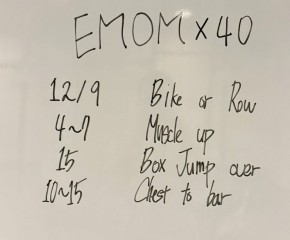 EMOM x 40
12/9 Bike or Row
4~7 Muscle up
15 Box Jump over
10~15 Chest to bar